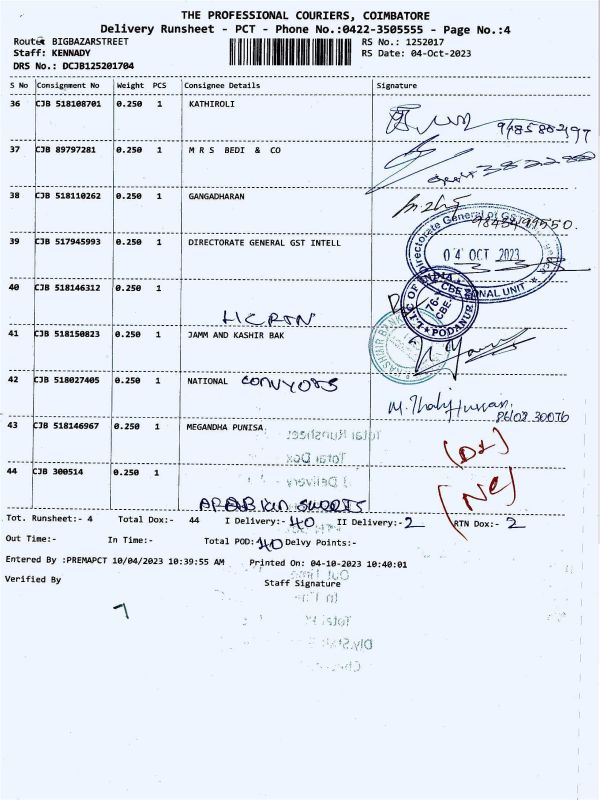 THE PROFESSIONAL COURIERS, COIMBATORE
Delivery Runsheet - PCT - Phone No.:0422-3505555 - Page No.:4
Route: BIGBAZARSTREET
RS No.: 1252017
Staff: KENNADY
RS Date: 04-Oct-2023
DRS No.: DCJB125201704
S No Consignment No Weight PCS Consignee Details Signature
36 CJB 518108701 0.250 1 KATHIROLI
37 CJB 89797281 0.250 1 M R S BEDI & CO
38 CJB 518110262 0.250 1 GANGADHARAN
39 CJB 517945993 0.250 1 DIRECTORATE GENERAL GST INTELL
04 OCT 2023
40 CJB 518146312 0.250 1
41 CJB 518150823 0.250 1 JAMM AND KASHIR BAK
42 CJB 518027405 0.250 1 NATIONAL CONVYORS
43 CJB 518146967 0.250 1 MEGANDHA PUNISA
44 CJB 300514 0.250 1
ARABIAN SWEETS
Tot. Runsheet:- 4 Total Dox:- 44 I Delivery:- 40 II Delivery:- 2 RTN Dox:- 2
Out Time:- In Time:- Total POD: 40 Delvy Points:-
Entered By :PREMAPCT 10/04/2023 10:39:55 AM Printed On: 04-10-2023 10:40:01
Verified By Staff Signature